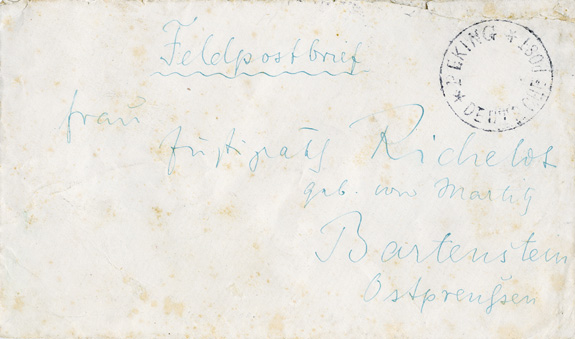 Feldpostbrief
PEKING * 1901
* DEUTSCHE
Frau
Justizrath Richelot
geb. von
Bartenstein
Ostpreußen